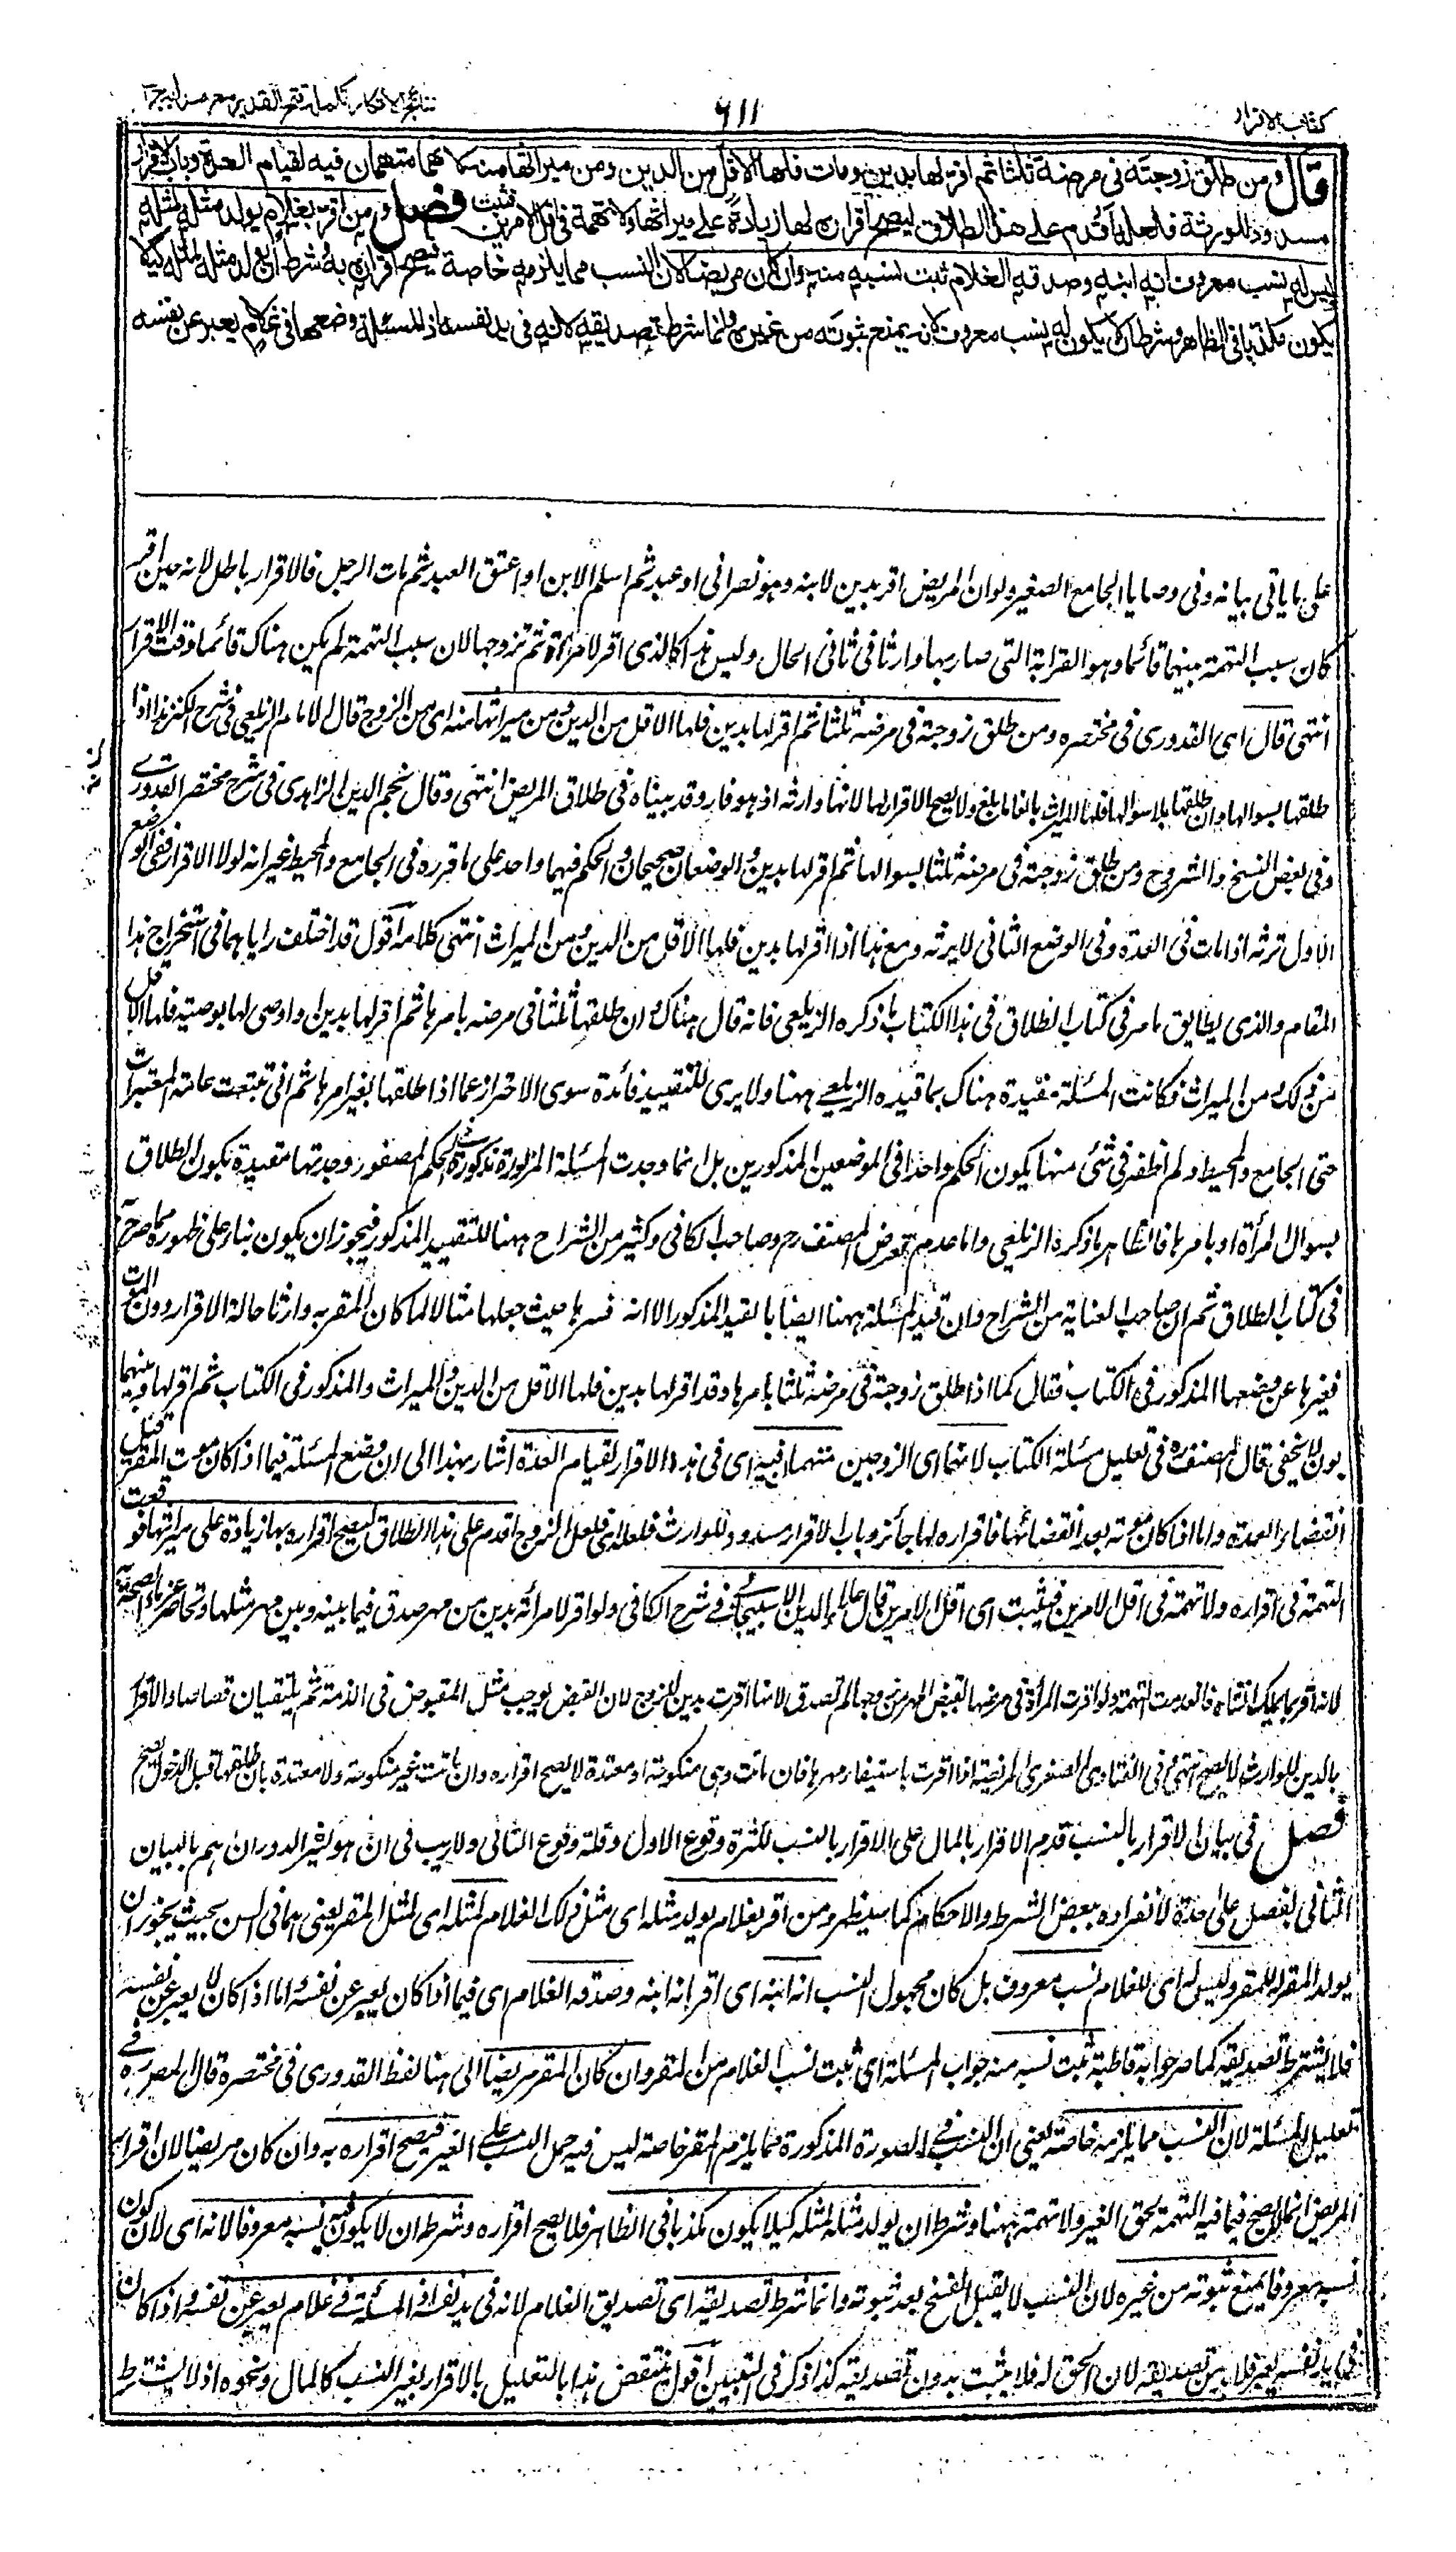 كتاب الاقرار
٦١١
نتائج الافكار تكملة فتح القدير مع هدايه ج٣
قال ومن طلق زوجته فى مرضه ثلثا ثم اقر لها بدين ومات فلها الاقل من الدين ومن ميراثها منه لانهما متهمان فيه لقيام العدة وباب الاقرار
مسدود للورثة فلعله اقدم على هذا الطلاق ليصح اقراره لها زيادة على ميراثها ولا تهمة فى اقل الامرين فثبت فصل ومن اقر بغلام يولد مثله لمثله
وليس له نسب معروف انه ابنه وصدقه الغلام ثبت نسبه منه وان كان مريضا لان النسب مما يلزمه خاصة فيصح اقراره به وشرط ان يولد مثله لمثله كيلا
يكون مكذبا فى الظاهر وشرط ان لا يكون له نسب معروف لانه يمنع ثبوته من غيره وانما شرط تصديقه لانه فى يد نفسه اذ المسئلة وضعها فى غلام يعبر عن نفسه
على ما ياتى بيانه وفى وصايا الجامع الصغير ولو ان المريض اقر بدين لابنه وهو نصرانى او عبد ثم اسلم الابن او اعتق العبد ثم مات الرجل فالاقرار باطل لانه حين اقر
كان سبب التهمة بينهما قائما وهو القرابة التى صار بها وارثا فى ثانى الحال وليس هذا كالذى اقر لامرأة ثم تزوجها لان سبب التهمة لم يكن هناك قائما وقت الاقرار
انتهى قال اى القدورى فى مختصره ومن طلق زوجته فى مرضه ثلثا ثم اقر لها بدين فلها الاقل من الدين ومن ميراثها منه اى من الزوج قال الامام الزيلعى فى شرح الكنز هذا اذا
طلقها بسوالها وان طلقها بلا سوالها فلها الميراث بالغا ما بلغ ولا يصح الاقرار لها لانها وارثه اذ هو فار وقد بيناه فى طلاق المريض انتهى وقال نجم الدين الزاهدى فى شرح مختصر القدورى
وفى بعض النسخ والشروح ومن طلق زوجته فى مرضه ثلثا بسوالها ثم اقر لها بدين والوضعان صحيحان والحكم فيهما واحد على ما قرره فى الجامع والمحيط غير انه لولا الاقرار ففى الوضع
الاول ترثه اذا مات فى العدة وفى الوضع الثانى لا يرثه ومع هذا اذا اقر لها بدين فلها الاقل من الدين ومن الميراث انتهى كلامه اقول قد اختلف راياهما فى استخراج هذا
المقام والذى يطابق ما مر فى كتاب الطلاق فى هذا الكتاب ما ذكره الزيلعى فانه قال هناك وان طلقها ثلثا فى مرضه بامرها ثم اقر لها بدين او اوصى لها بوصيه فلها الاقل
من ذلك ومن الميراث فكانت المسئلة مقيدة هناك بما قيده الزيلعى ههنا ولا يرى للتقييد فائدة سوى الاحتراز عما اذا طلقها بغير امرها ثم انى تتبعت عامة المعتبرات
حتى الجامع والمحيط ولم اظفر فى شئى منها يكون الحكم واحدا فى الموضعين المذكورين بل انما وجدت المسئلة المزبورة مذكورة الحكم وجدتها مقيدة بكون الطلاق
بسوال المرأة او بامرها فالظاهر ما ذكره الزيلعى واما عدم تعرض المصنف رح وصاحب الكافى وكثير من الشراح ههنا للتقييد المذكور فيجوز ان يكون بناء على ظهوره مما صرح به
فى كتاب الطلاق ثم ان صاحب العناية من الشراح وان قيد المسئلة ههنا ايضا بالقيد المذكور الا انه فسرها حيث جعلها مثالا لما كان المقر به وارثا حالة الاقرار دون الموت
فغيرها عن وضعها المذكور فى الكتاب فقال كما اذا طلق زوجته فى مرضه ثلثا بامرها وقد اقر لها بدين فلها الاقل من الدين والميراث والمذكور فى الكتاب ثم اقر لها وبينهما
بون لا يخفى قال المصنف رح فى تعليل مسئلة الكتاب لانهما اى الزوجين متهمان فيه اى فى هذا الاقرار لقيام العدة اشار بهذا الى ان وضع المسئلة فيما اذا كان موت المقر قبل
انقضاء العدة واما اذا كان موته بعد انقضائها فاقراره لها جائز وباب الاقرار مسدود للوارث فلعله اى فلعل الزوج اقدم على هذا الطلاق ليصح اقراره بها زيادة على ميراثها فوقعت
التهمة فى اقراره ولا تهمة فى اقل الامرين فيثبت اى اقل الامرين قال علاء الدين الاسبيجابى فى شرح الكافى ولو اقر لامرأته بدين من مهر صدق فيما بينه وبين مهر مثلها
لانه اقر بما يملك انشاءه فانعدمت التهمة ولو اقرت المرأة فى مرضها بقبض المهر من زوجها لم تصدق لانها اقرت بدين للزوج لان القبض يوجب مثل المقبوض فى الذمة ثم يلتقيان قصاصا والاقرار
بالدين للوارث لا يصح انتهى وفى الفتاوى الصغرى المريضة اذا اقرت باستيفاء مهرها فان ماتت وهى منكوحة او معتدة لا يصح اقراره وان ماتت غير منكوحة ولا معتدة بان طلقها قبل الدخول يصح
فصل فى بيان الاقرار بالنسب قدم الاقرار بالمال على الاقرار بالنسب لكثرة وقوع الاول وقلة وقوع الثانى ولا ريب فى ان ما هو كثير الدوران اهم بالبيان
الثانى بفصل على حدة لانفراده ببعض الشرط والاحكام كما سيظهر ومن اقر بغلام يولد مثله اى مثل ذلك الغلام لمثله اى لمثل المقر يعنى هما فى السن بحيث يجوز ان
يولد المقر له للمقر وليس له اى للغلام نسب معروف بل كان مجهول النسب انه ابنه اى اقر انه ابنه وصدقه الغلام اى فيما اذا كان يعبر عن نفسه اما اذا كان لا يعبر عن نفسه
فلا يشترط تصديقه كما صرحوا به قاطبة ثبت نسبه منه جواب المسئلة اى ثبت نسب الغلام من المقر وان كان المقر مريضا الى هنا لفظ القدورى فى مختصره قال المص رح فى
تعليل المسئلة لان النسب مما يلزمه خاصة يعنى ان النسب فى الصورة المذكورة مما يلزم المقر خاصة ليس فيه حمل النسب على الغير فيصح اقراره به وان كان مريضا لان اقرار
المريض انما لا يصح فيما فيه التهمة بحق الغير ولا تهمة ههنا وشرط ان يولد مثله لمثله كيلا يكون مكذبا فى الظاهر فلا يصح اقراره وشرط ان لا يكون نسبه معروفا لانه اى لان كون
نسبه معروفا يمنع ثبوته من غيره لان النسب لا يقبل الفسخ بعد ثبوته وانما شرط تصديقه اى تصديق الغلام لانه فى يد نفسه اذ المسئلة فى غلام يعبر عن نفسه واذا كان
فى يد نفسه يعتبر فلا بد من تصديقه لان الحق له فلا يثبت بدون تصديقه كذا ذكر فى التبيين اقول ينتقض هذا بالتعليل بالاقرار بغير النسب كالمال ونحوه اذ لا يشترط